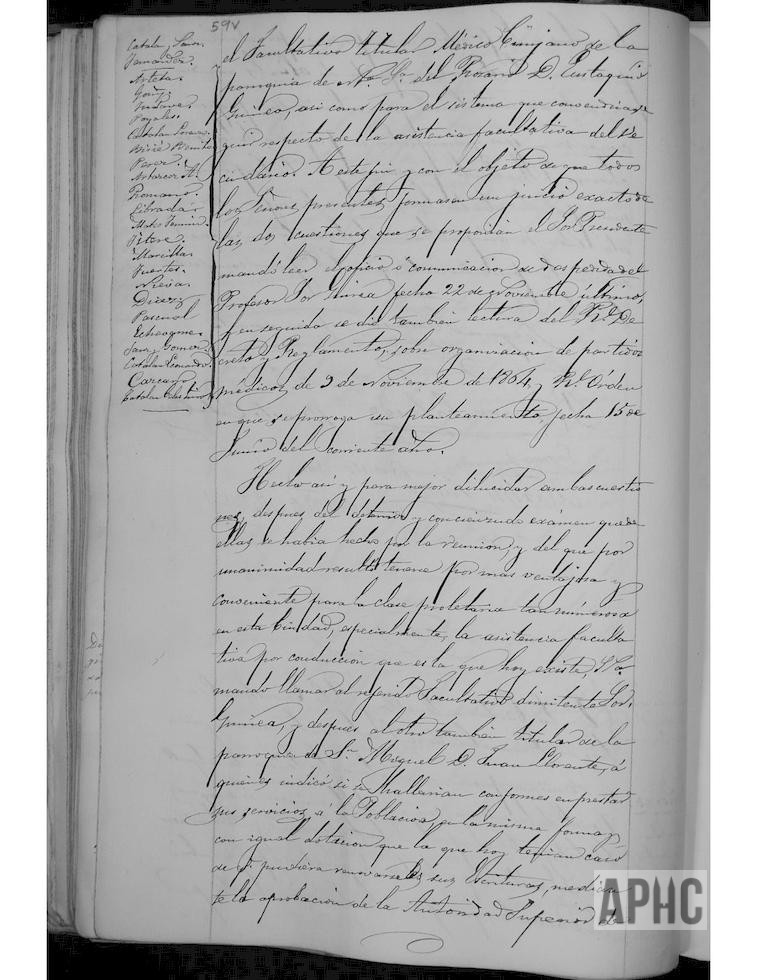 59v
Catalan, Sanz.
Fernandez.
Arteta.
Goñi,
Pozales.
Catalan Lorenzo.
Perez.
Romano.
Librada.
Mateo Fermin.
Pitere.
Mancilla.
Fuertes.
Nieva.
Diaz
Pascual
Echeagone.
Sanz, Gomez.
Catalan Leonardo.
Carcavo.
Catalan Celestino
el Facultativo titular Médico Cirujano de la
parroquia de Ntra. Sra. del Rosario D. Eustaquio
Guinea, así como para el sistema que convendria se
guir respecto de la asistencia facultativa del ve
cindario. A este fin y con el objeto de que todos
los Señores presentes formasen un juicio exacto de
las dos cuestiones que se proponian el Sor. Presidente
mandó leer el oficio ó comunicacion de despedida del
Profesor Sor Guinea fecha 22 de Noviembre último,
y en seguida se dió tambien lectura del Rl. De
creto y Reglamento, sobre organizacion de partidos
médicos, de 9 de Noviembre de 1864, y Rl. Orden
en que se prorroga su planteamiento, fecha 15 de
Junio del corriente año.
Hecho así y para mejor dilucidar ambas cuestio
nes, despues del detenido y concienzudo exámen que de
ellas se habia hecho por la reunion, y del que por
unanimidad resultó tenerse por mas ventajosa y
conveniente para la clase proletaria tan numerosa
en esta Ciudad, especialmente, la asistencia faculta
tiva por conduccion que es la que hoy existe, S. Sa.
mandó llamar al referido Facultativo dimitente Sor.
Guinea, y despues al otro tambien titular de la
parroquia de Sn. Miguel D. Juan Llorente, á
quienes indicó si se hallarian conformes en prestar
sus servicios á la Poblacion, en la misma forma y
con igual dotacion que la que hoy tenian caso
de q. pudiera renovarse sus Escrituras, median
te la aprobacion de la Autoridad Superior de
APHC